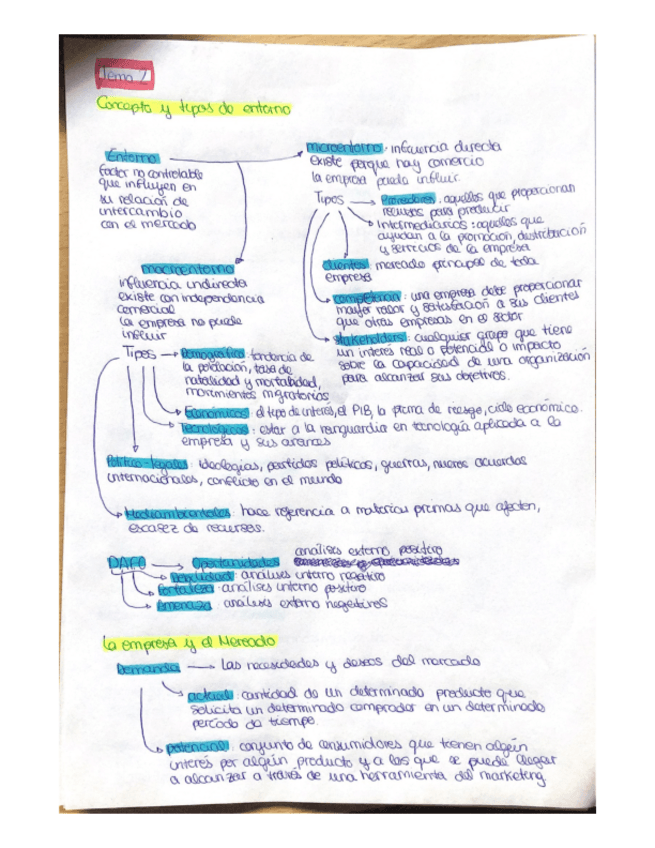 Tema 2
Concepto y tipos de entorno
Entorno
factor no controlable
que influyen en
su relación de
intercambio
con el mercado
microentorno: influencia directa
existe porque hay comercio
la empresa puede influir.
Tipos → Proveedores: aquellos que proporcionan
recursos para producir
Intermediarios: aquellos que
ayudan a la promoción, distribución
y servicios de la empresa
clientes: mercado principal de toda
empresa
competencia: una empresa debe proporcionar
mayor valor y satisfacción a sus clientes
que otras empresas en el sector
stakeholders: cualquier grupo que tiene
un interés real o potencial o impacto
sobre la capacidad de una organización
para alcanzar sus objetivos.
macroentorno
influencia indirecta
existe con independencia
comercial
la empresa no puede
influir
Tipos → Demográfico: tendencia de
la población, tasa de
natalidad y mortalidad,
movimientos migratorios
Económicos: el tipo de interés, el PIB, la prima de riesgo, ciclo económico.
Tecnológicos: estar a la vanguardia en tecnología aplicada a la
empresa y sus avances
Político-legales: ideologías, partidos políticos, guerras, nuevos acuerdos
internacionales, conflicto en el mundo
Medioambientales: hace referencia a materias primas que afecten,
escasez de recursos.
DAFO → Oportunidades análisis externo positivo
Debilidad: análisis interno negativo
Fortaleza: análisis interno positivo
Amenaza: análisis externo negativos
La empresa y el Mercado
Demanda → Las necesidades y deseos del mercado
actual: cantidad de un determinado producto que
solicita un determinado comprador en un determinado
período de tiempo.
potencial: conjunto de consumidores que tienen algún
interés por algún producto y a los que se puede llegar
a alcanzar a través de una herramienta del marketing